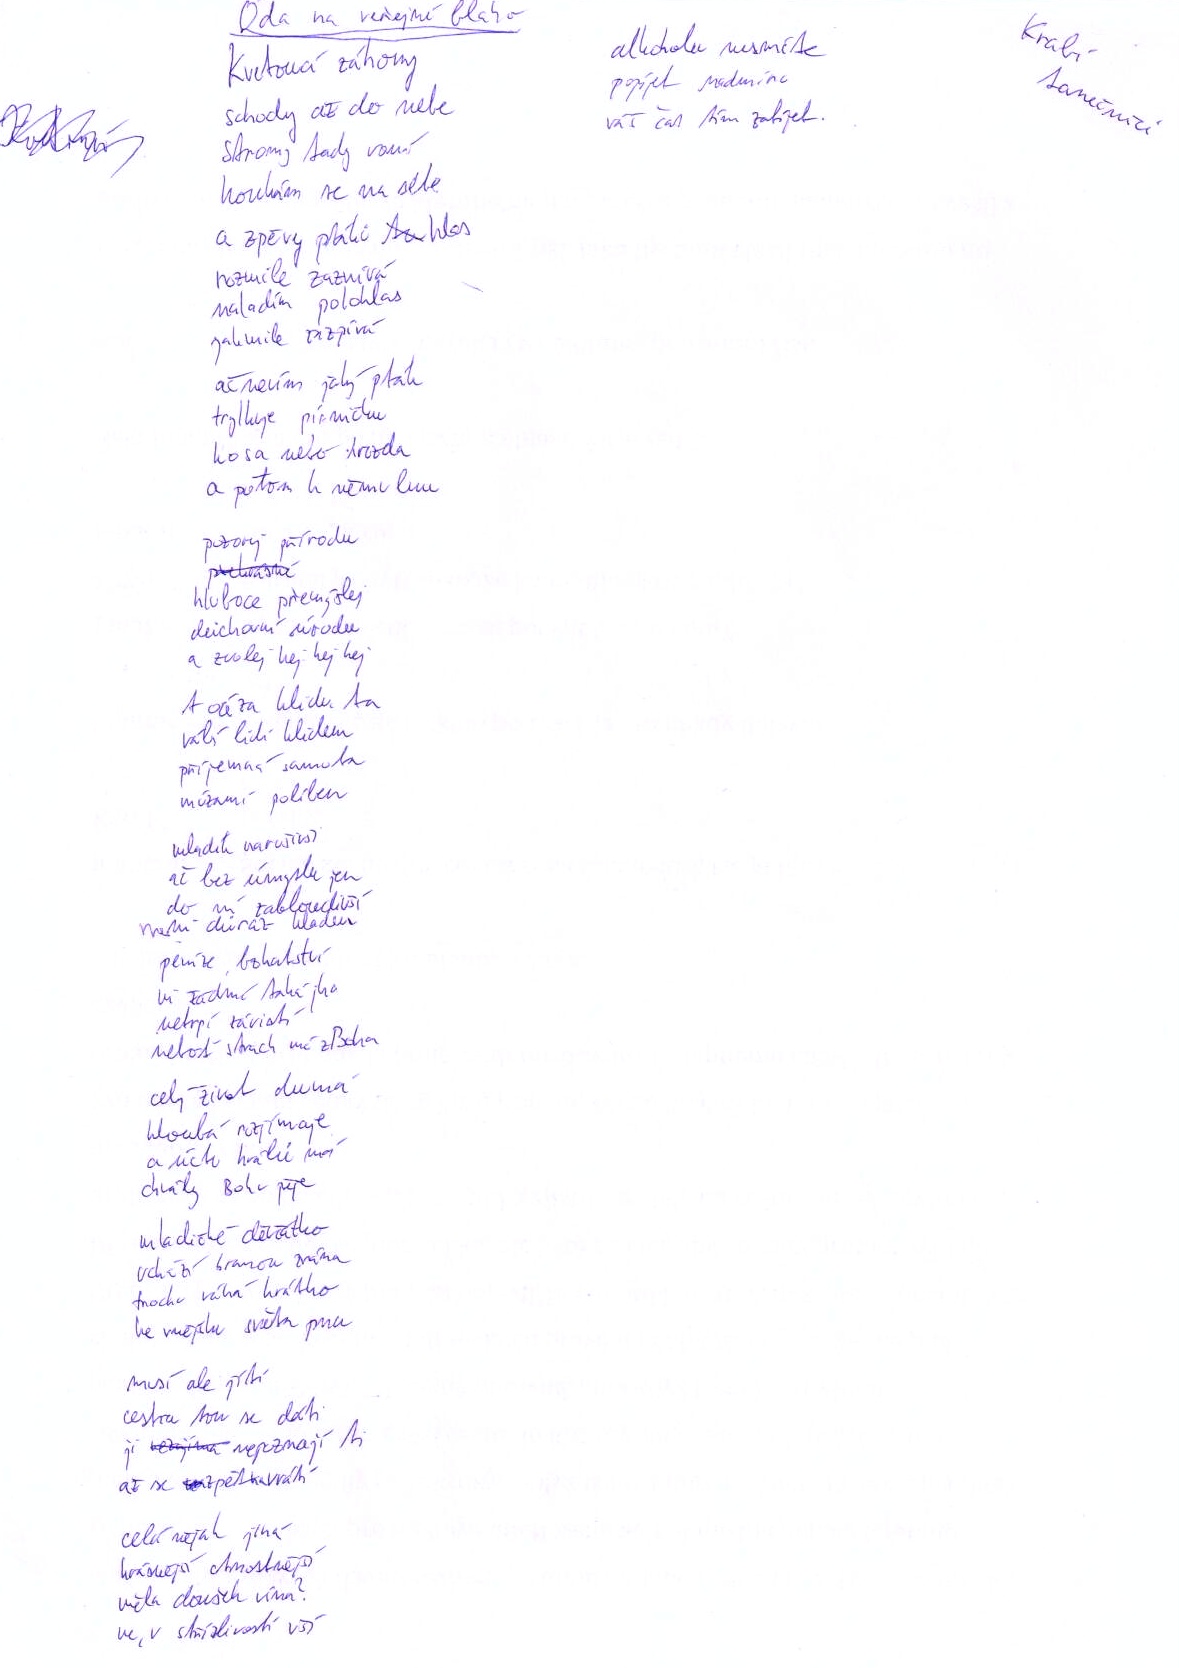 Óda na veřejné blaho
Kvetoucí záhony
schody až do nebe
stromy tady voní
koukám se na sebe
a zpěvy ptáků hlas
rozmile zaznívá
naladím polohlas
jakmile zazpívá
ač nevím jaký pták
trylkuje písničku
kosa nebo drozda
a potom k němu lnu
pozoruj přírodu
hluboce přemýšlej
duchovní úrodu
a zvolej hej hej hej
t oáza klidu ta
vábí lidi klidem
příjemná samota
múzami políben
mladík
ač bez úmyslu jen
do ní zabloudivší
důraz kladen
peníze, bohatství
ni žádné taká jha
netrpí závistí
neboť strach má z Boha
celý život dumá
hloubá rozjímaje
a úctu krátce
chvály Bohu pěje
mladičké děvčátko
vchází branou
trochu váhá krátko
ke vnějšku světa
musí ale jíti
cestou tou se dáti
ji nepoznají ti
až se zpět navrátí
celá nějak jiná
krásnější ctnostnější
měla doušek vína?
ne, v střízlivosti vší
alkoholu nesmíte
popíjet nadmíru
váš čas tím zabíjet.
Krabí
tanečníci